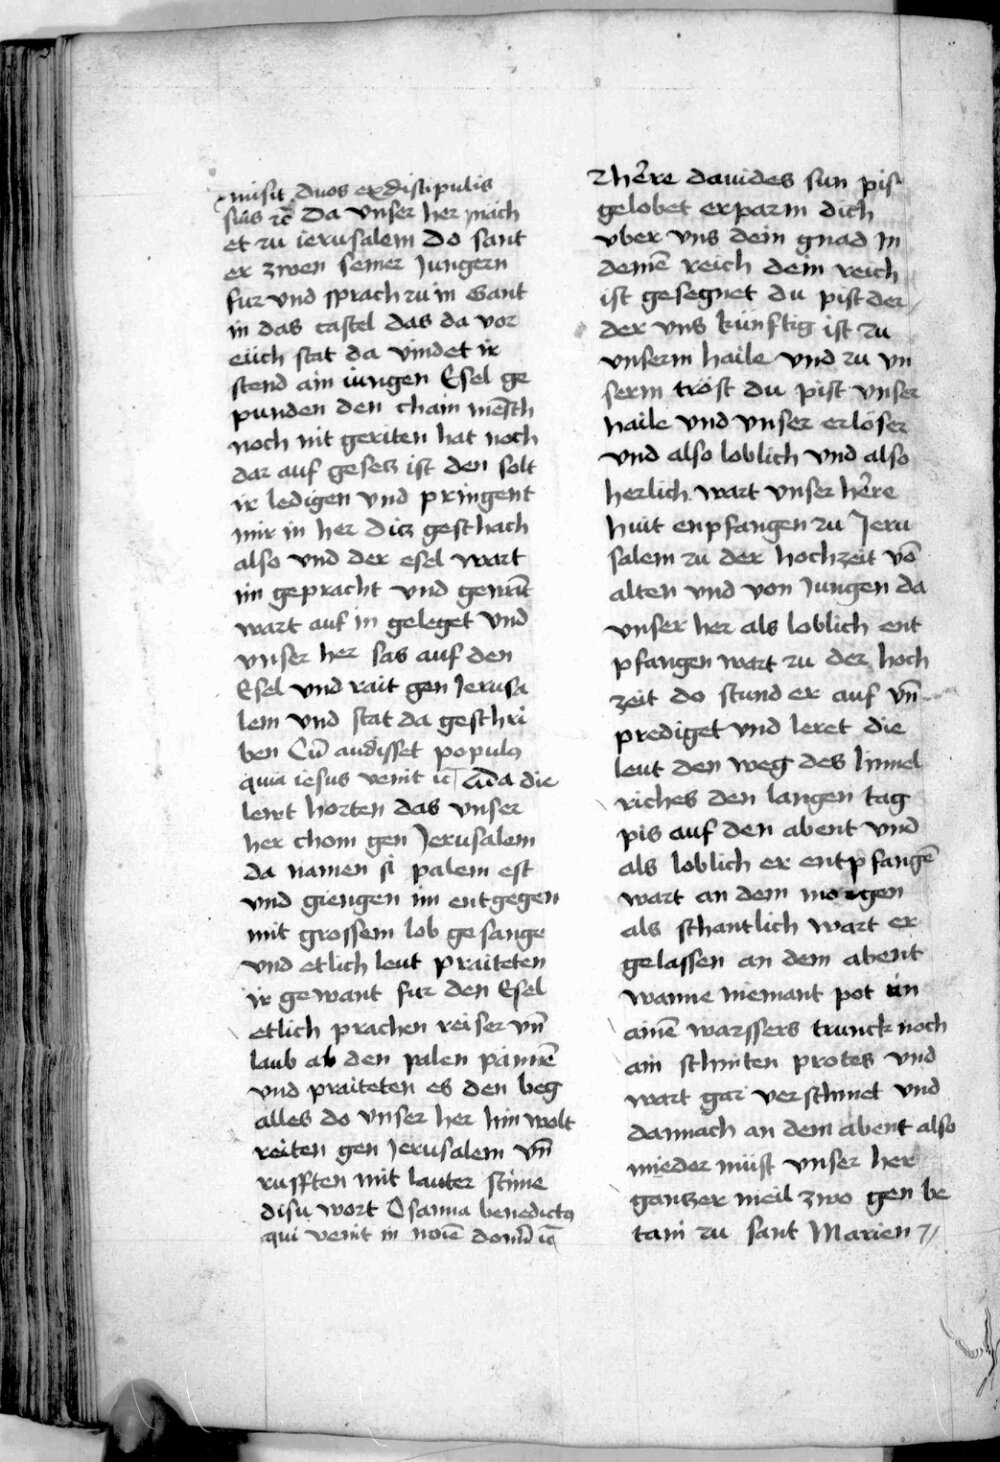 misit duos ex discipulis
suis rc̄ Da vnser her nach
et zu ierusalem do sant
er zwen seiner Jungern
fur vnd sprach zu in Gant
in das castel das da vor
eüch stat da vindet ir
stend ain iungen Esel ge
punden den chain mēsch
noch nit geriten hat noch
dar auf gesesz ist den solt
ir ledigen vnd pringent
mir in her Ditz geschach
also vnd der esel wart
im gepracht vnd gewāt
wart auf in geleget vnd
vnser her sas auf den
Esel vnd rait gen Jerusa
lem vnd stat da geschri
ben Cū audisset populus
quia iesus venit rc̄ Da die
lewt horten das vnser
her chom gen Jerusalem
da namen si palem est
vnd giengen im entgegen
mit grossem lob gesange
vnd etlich leut praiteten
ir gewant fur den Esel
etlich prachen reiser vn̄
laub ab den palen pāmē
vnd praiteten es den beg
alles do vnser her hin wolt
reiten gen Jerusalem vn̄
rufften mit lauter stīme
disu wort Osanna benedictus
qui venit in noīe domī rc̄
here dauides sun pis
gelobet erparm dich
vber vns dein gnad In
deinē reich dein reich
ist gesegnet du pist der
der vns künftig ist zu
vnserm haile vnd zu vn
serm trost du pist vnser
haile vnd vnser erlöser
vnd also loblich vnd also
herlich wart vnser here
hüt enpfangen zu Jeru
salem zu der hochzeit vō
alten vnd von Jungen da
vnser her als loblich ent
pfangen wart zu der hoch
zeit do stund er auf vn̄
prediget vnd leret die
leut den weg des himel
riches den langen tag
pis auf den abent vnd
als loblich er entpfangē
wart an dem morgen
als schantlich wart er
gelassen an dem abent
wanne niemant pot im
ainē warssers trunck noch
ain schniten protes vnd
wart gar verschmet vnd
darnach an dem abent also
mieder müst vnser her
gantzer meil zwo gen be
tani zu sant Marien